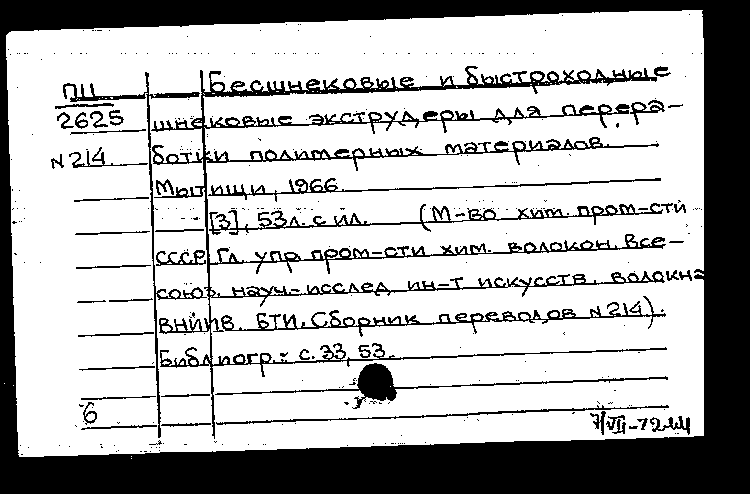 ПII
2625
N 214.
Бесшнековые и быстроходные
шнековые экструдеры для перера-
ботки полимерных материалов.
Мытищи, 1966.
[3], 53л. с ил. (М-во хим. пром-сти
СССР. Гл. упр. пром-сти хим. волокон. Все-
союз. науч.-исслед. ин-т искусств. волокна
ВНИИВ. БТИ. Сборник переводов N 214).
Библиогр.: с. 33, 53.
6
7/VII-72